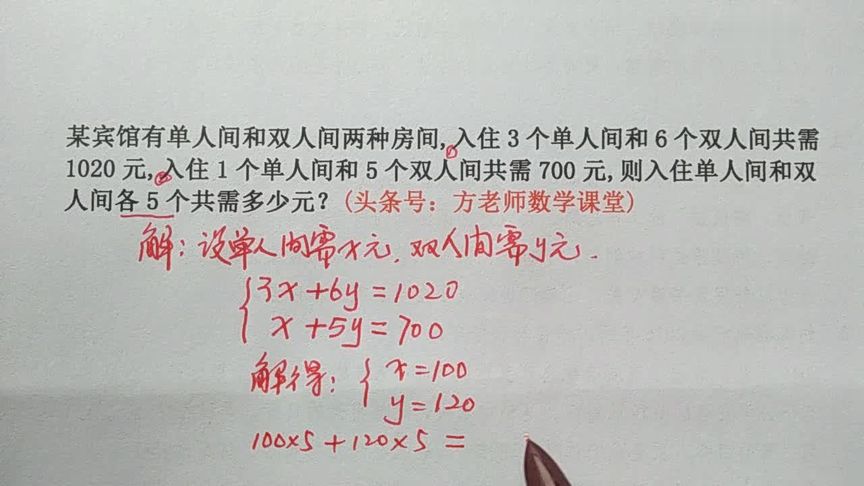 某宾馆有单人间和双人间两种房间,入住 3 个单人间和 6 个双人间共需
1020 元,入住 1 个单人间和 5 个双人间共需 700 元,则入住单人间和双
人间各 5 个共需多少元?(头条号:方老师数学课堂)
解:设单人间需x元,双人间需y元.
3x+6y=1020
x+5y=700
解得:{x=100
y=120
100×5+120×5=